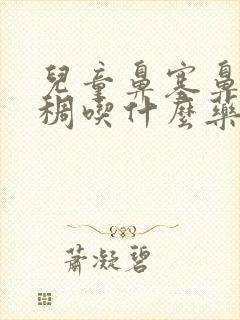 兒童鼻塞鼻
稠喫什麼藥
蕭凝碧